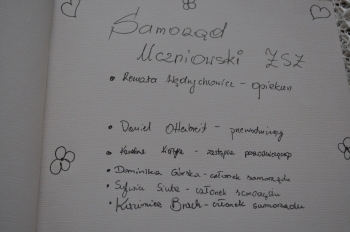 Samorząd
Uczniowski ZSZ
• Renata Wędrychowicz - opiekun
• Daniel - przewodniczący
• - zastępca przewodniczącego
• Dominika Górska - członek samorządu
• Sylwia - członek samorządu
• Kazimierz - członek samorządu